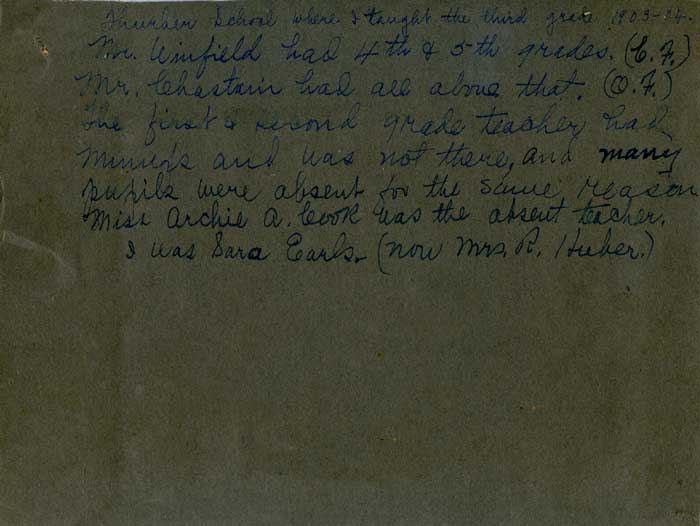 Thurber School where I taught the third grade 1903-04.
Mr. Winfield had 4th & 5th grades. (C.F.)
Mr. Chastain had all above that. (O.F.)
The first & second grade teacher had
mumps and was not there, and many
pupils were absent for the same reason
Miss Archie A. Cook was the absent teacher.
I was Sara Earls. (now Mrs. R. Huber.)